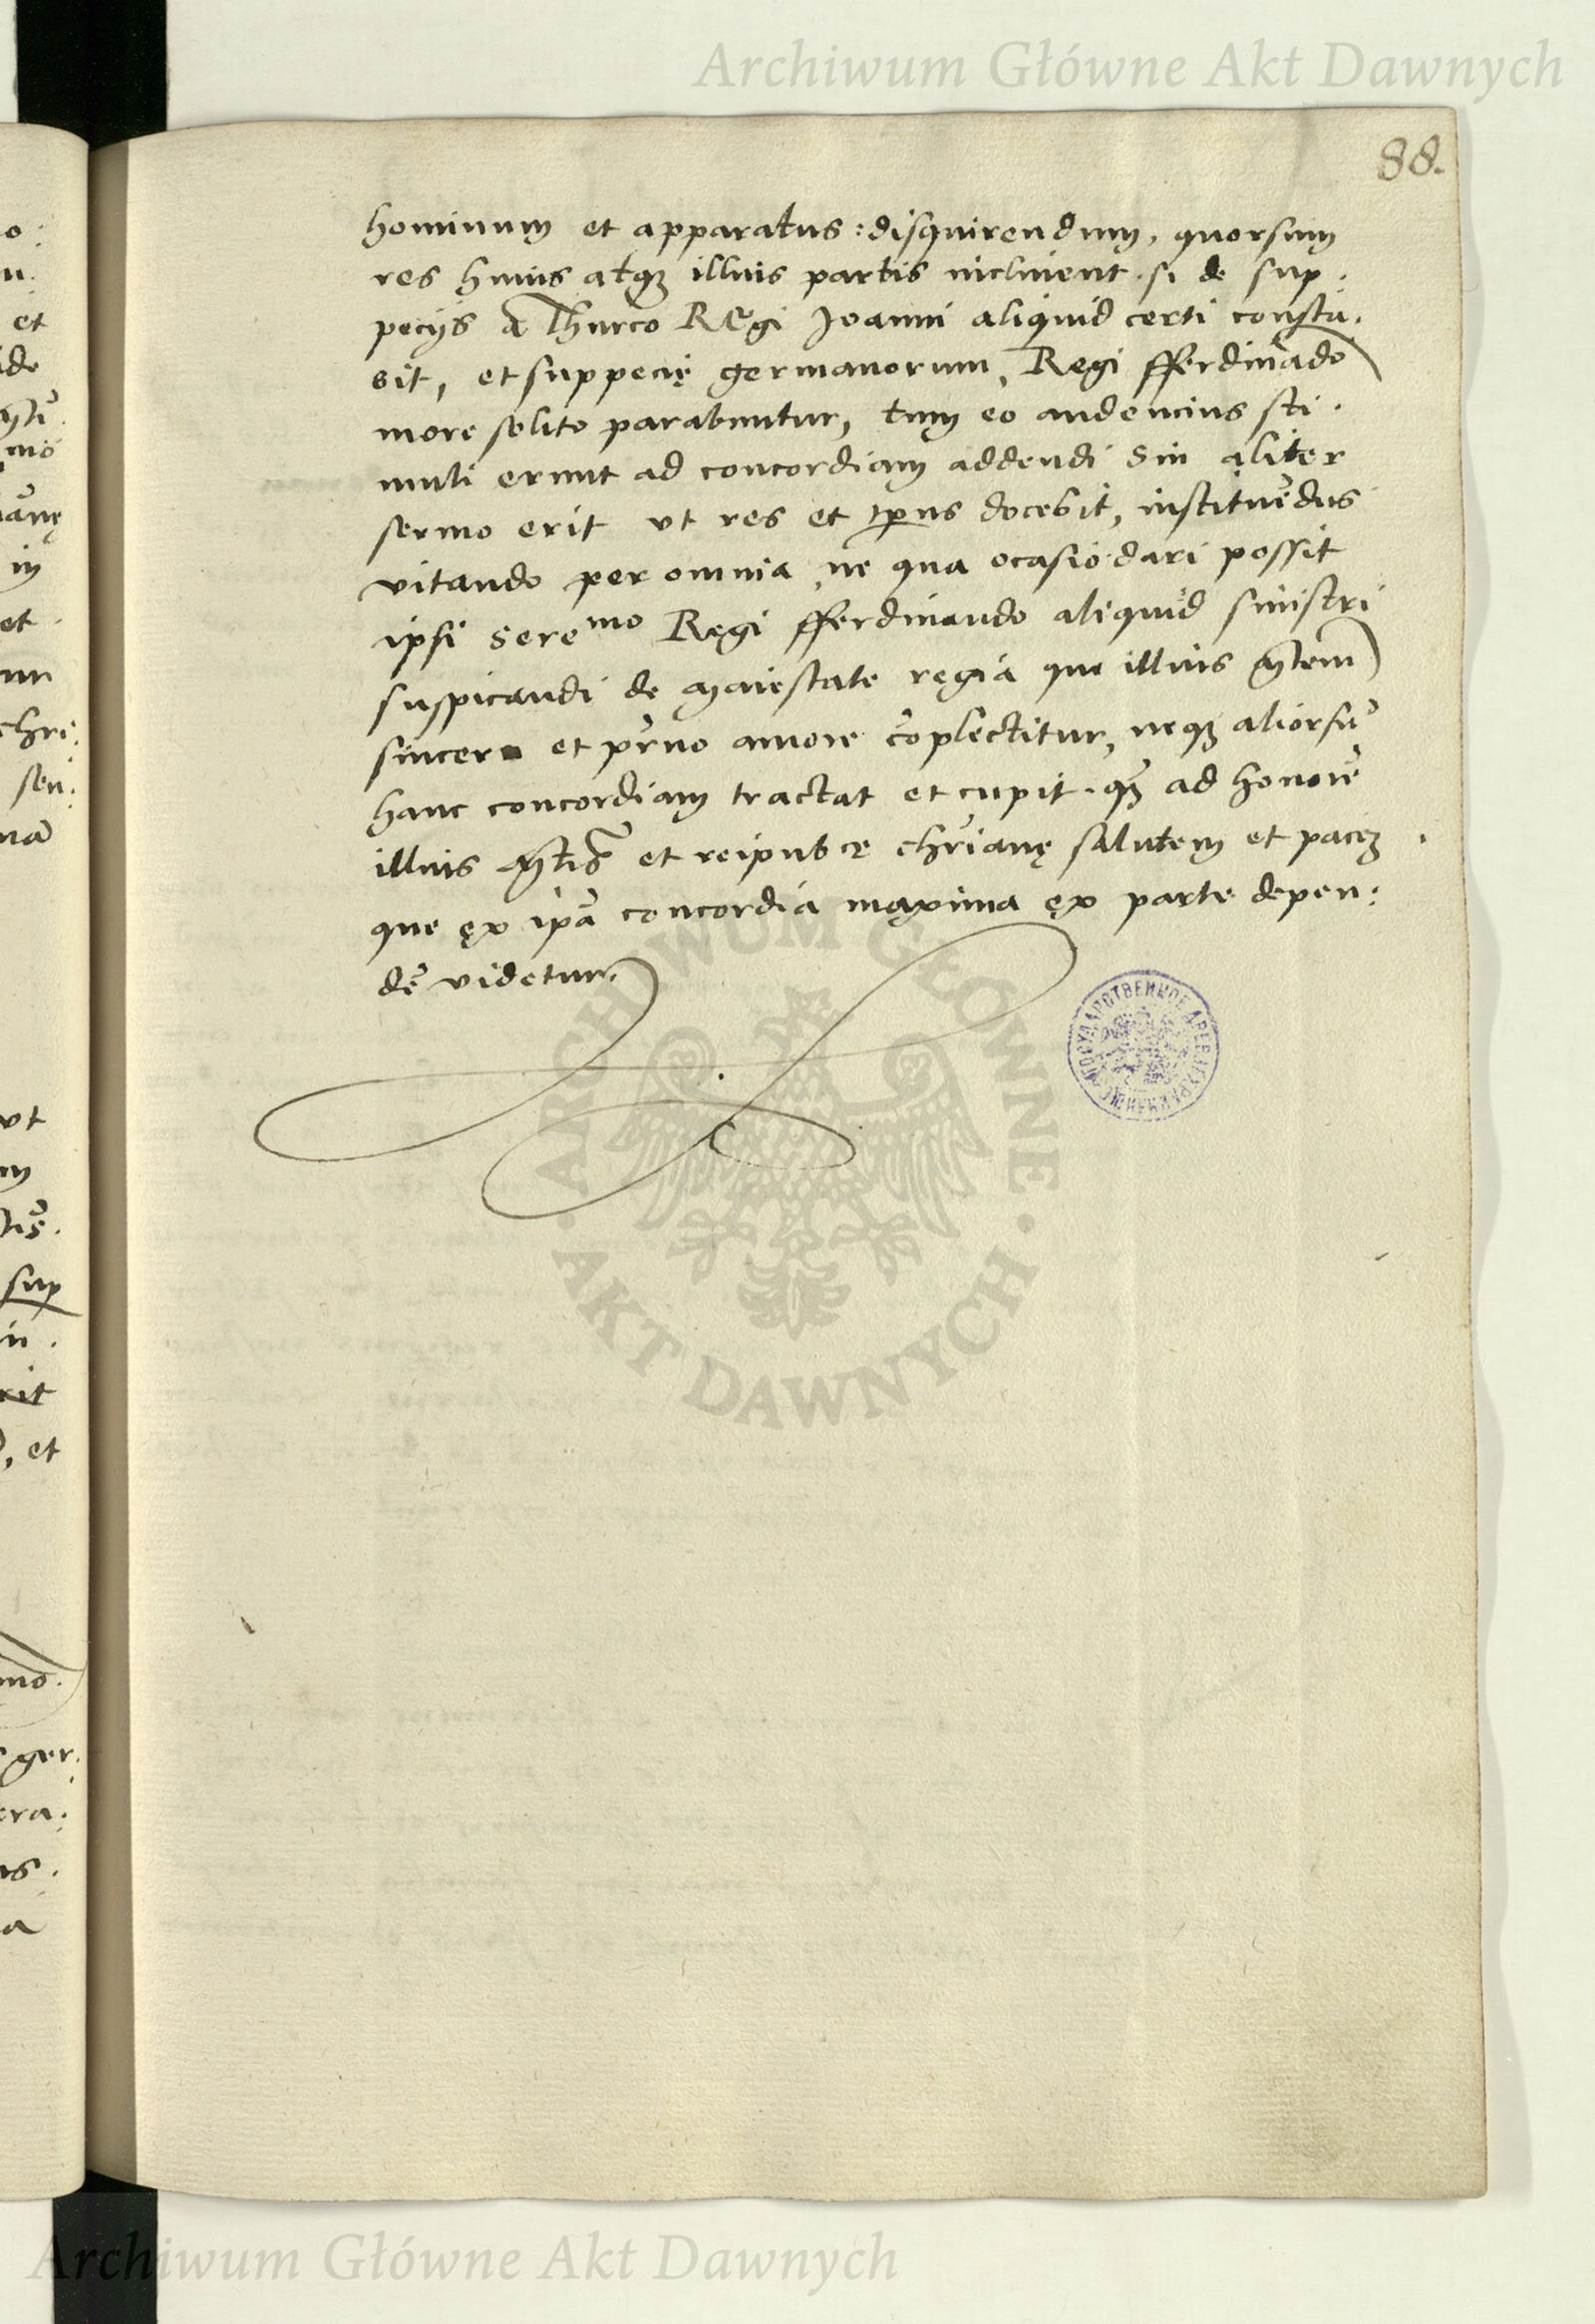 Archiwum Główne Akt Dawnych
88.
hominum et apparatus : disquirendum, quorsum
res huius atq₃ illius partis inclinent . si de sup .
pecijs a Thurco Regi Joanni aliquid certi constu .
sit, et suppecię germanorum, Regi fferdinādo
more solito parabuntur, tum eo audencius sti .
muli erunt ad concordiam addendi sin aliter
sermo erit vt res et tpus docebit, instituēdus
vitando per omnia ne qua ocasio dari possit
ipsi sere^mo Regi fferdinando aliquid sinistri
suspicandi de Maiestate regia que illius Mtem
sincero et pr̄no amore cōplectitur, neq₃ aliorsū
hanc concordiam tractat et cupit . q₃ ad honorē
illius Mtis et reipub ce chr̄ianę salutem et pacē
que ex ip̄a concordia maxima ex parte depen :
dē videtur.
ARCHIWUM GŁÓWNE
AKT DAWNYCH
Archiwum Główne Akt Dawnych